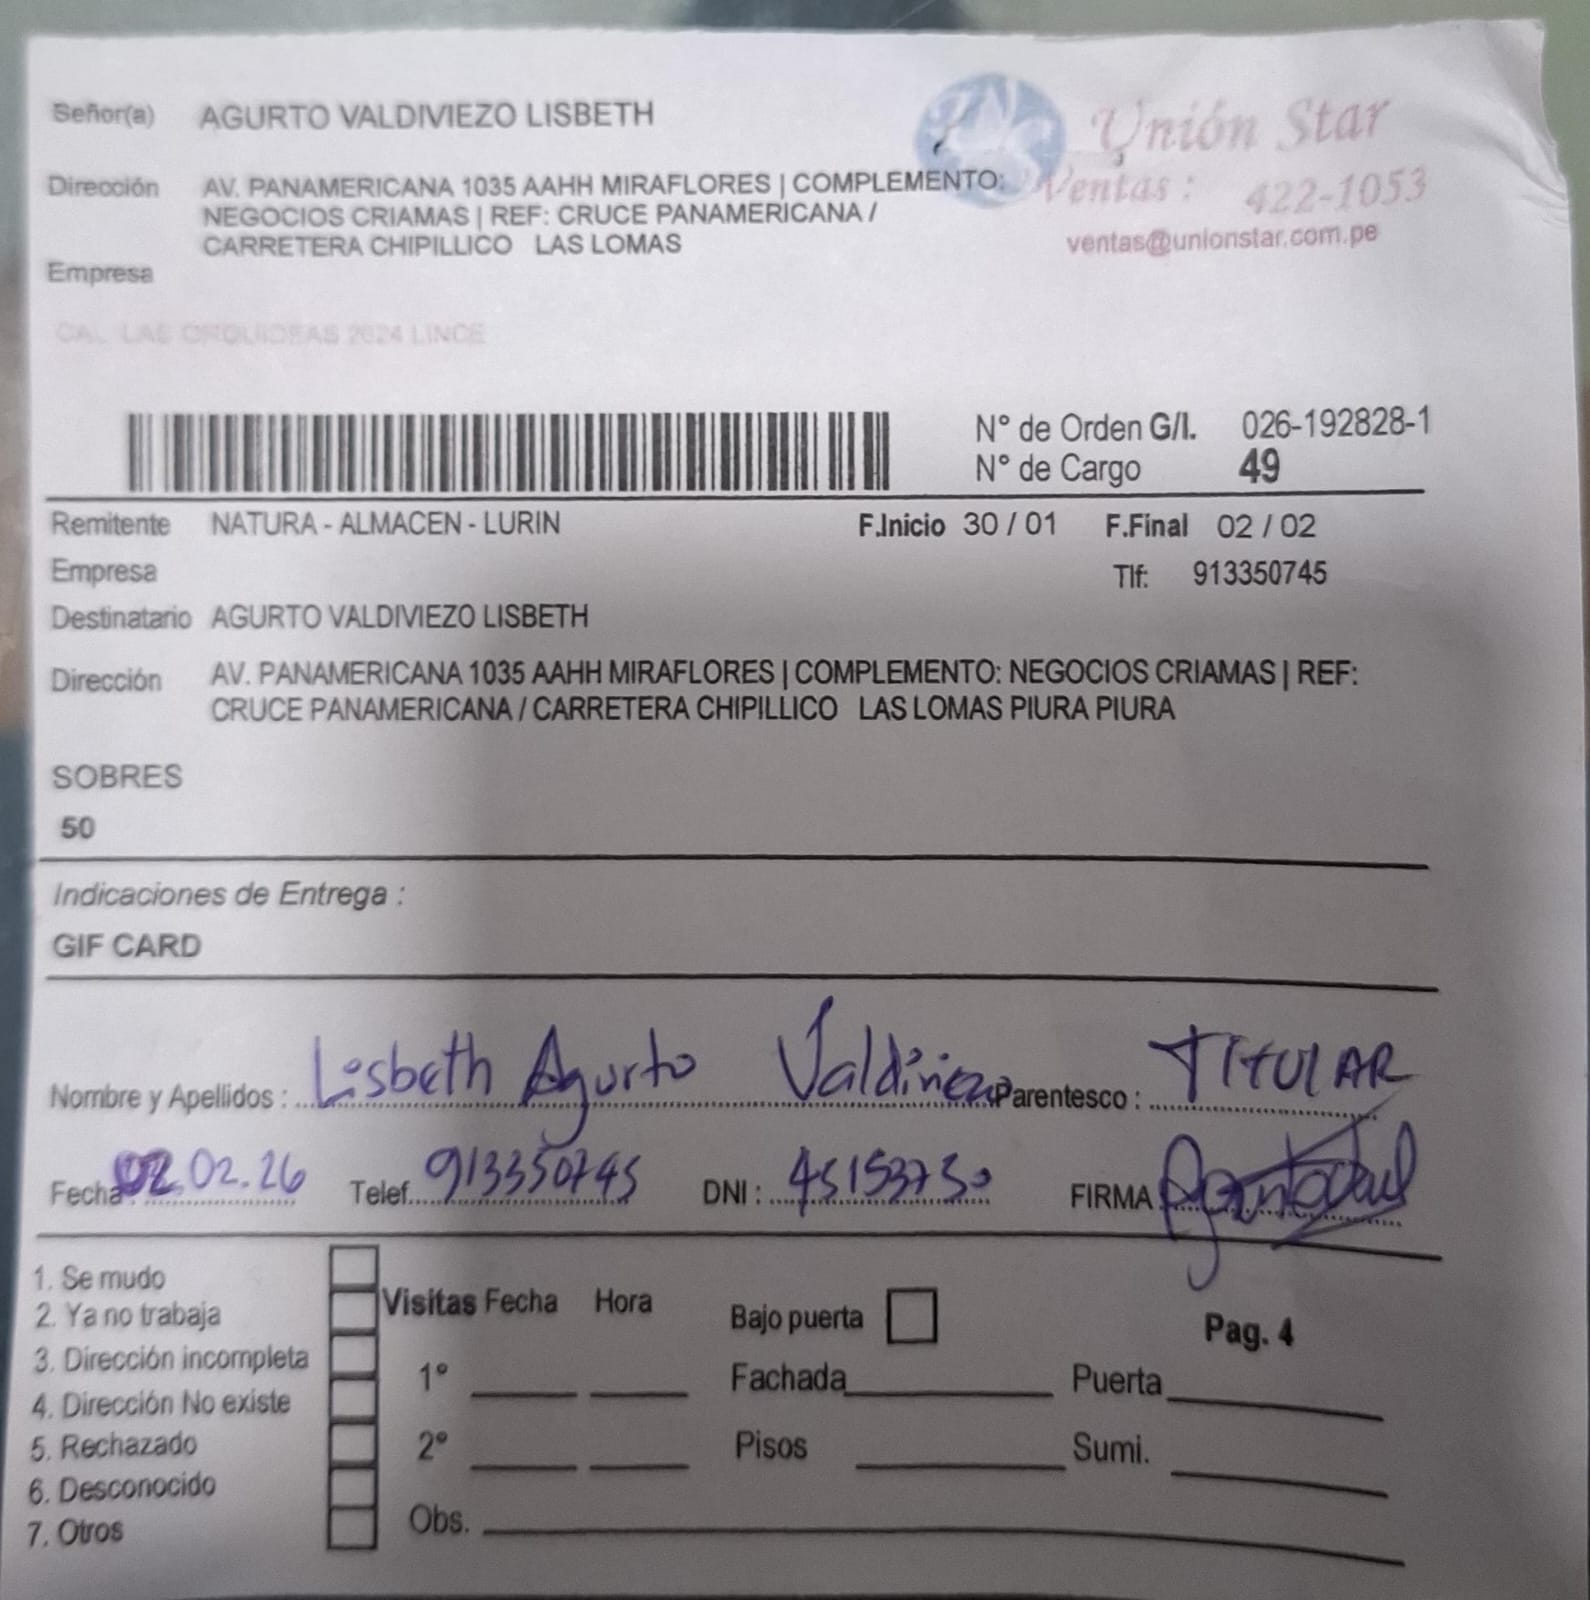 Señor(a) AGURTO VALDIVIEZO LISBETH
Unión Star
Dirección AV. PANAMERICANA 1035 AAHH MIRAFLORES | COMPLEMENTO:
NEGOCIOS CRIAMAS | REF: CRUCE PANAMERICANA /
CARRETERA CHIPILLICO LAS LOMAS
Ventas : 422-1053
ventas@unionstar.com.pe
Empresa
CAL LAS ORQUIDEAS 2624 LINCE
N° de Orden G/I. 026-192828-1
N° de Cargo 49
Remitente NATURA - ALMACEN - LURIN F.Inicio 30 / 01 F.Final 02 / 02
Empresa Tlf: 913350745
Destinatario AGURTO VALDIVIEZO LISBETH
Dirección AV. PANAMERICANA 1035 AAHH MIRAFLORES | COMPLEMENTO: NEGOCIOS CRIAMAS | REF:
CRUCE PANAMERICANA / CARRETERA CHIPILLICO LAS LOMAS PIURA PIURA
SOBRES
50
Indicaciones de Entrega :
GIF CARD
Nombre y Apellidos : Lisbeth Agurto Parentesco : TITULAR
Fecha : 02.02.26 Telef. 913350745 DNI : 45153730 FIRMA
1. Se mudo
2. Ya no trabaja
3. Dirección incompleta
4. Dirección No existe
5. Rechazado
6. Desconocido
7. Otros
Visitas Fecha Hora
1°
2°
Obs.
Bajo puerta
Fachada
Pisos
Pag. 4
Puerta
Sumi.